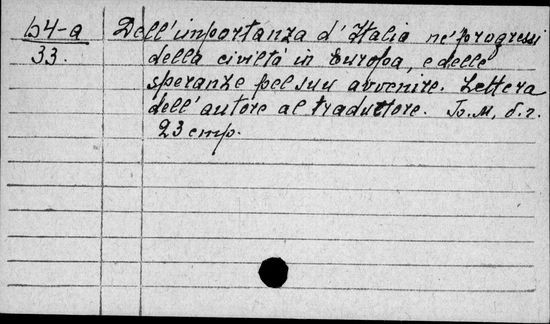 b4-a
33.
Dell'importanza d'Italia ne' progressi
della civiltá in Europa, e delle
speranze pel suu avvenire. Lettera
dell'autore al traduttore. То.М, б.г.
23 стр.